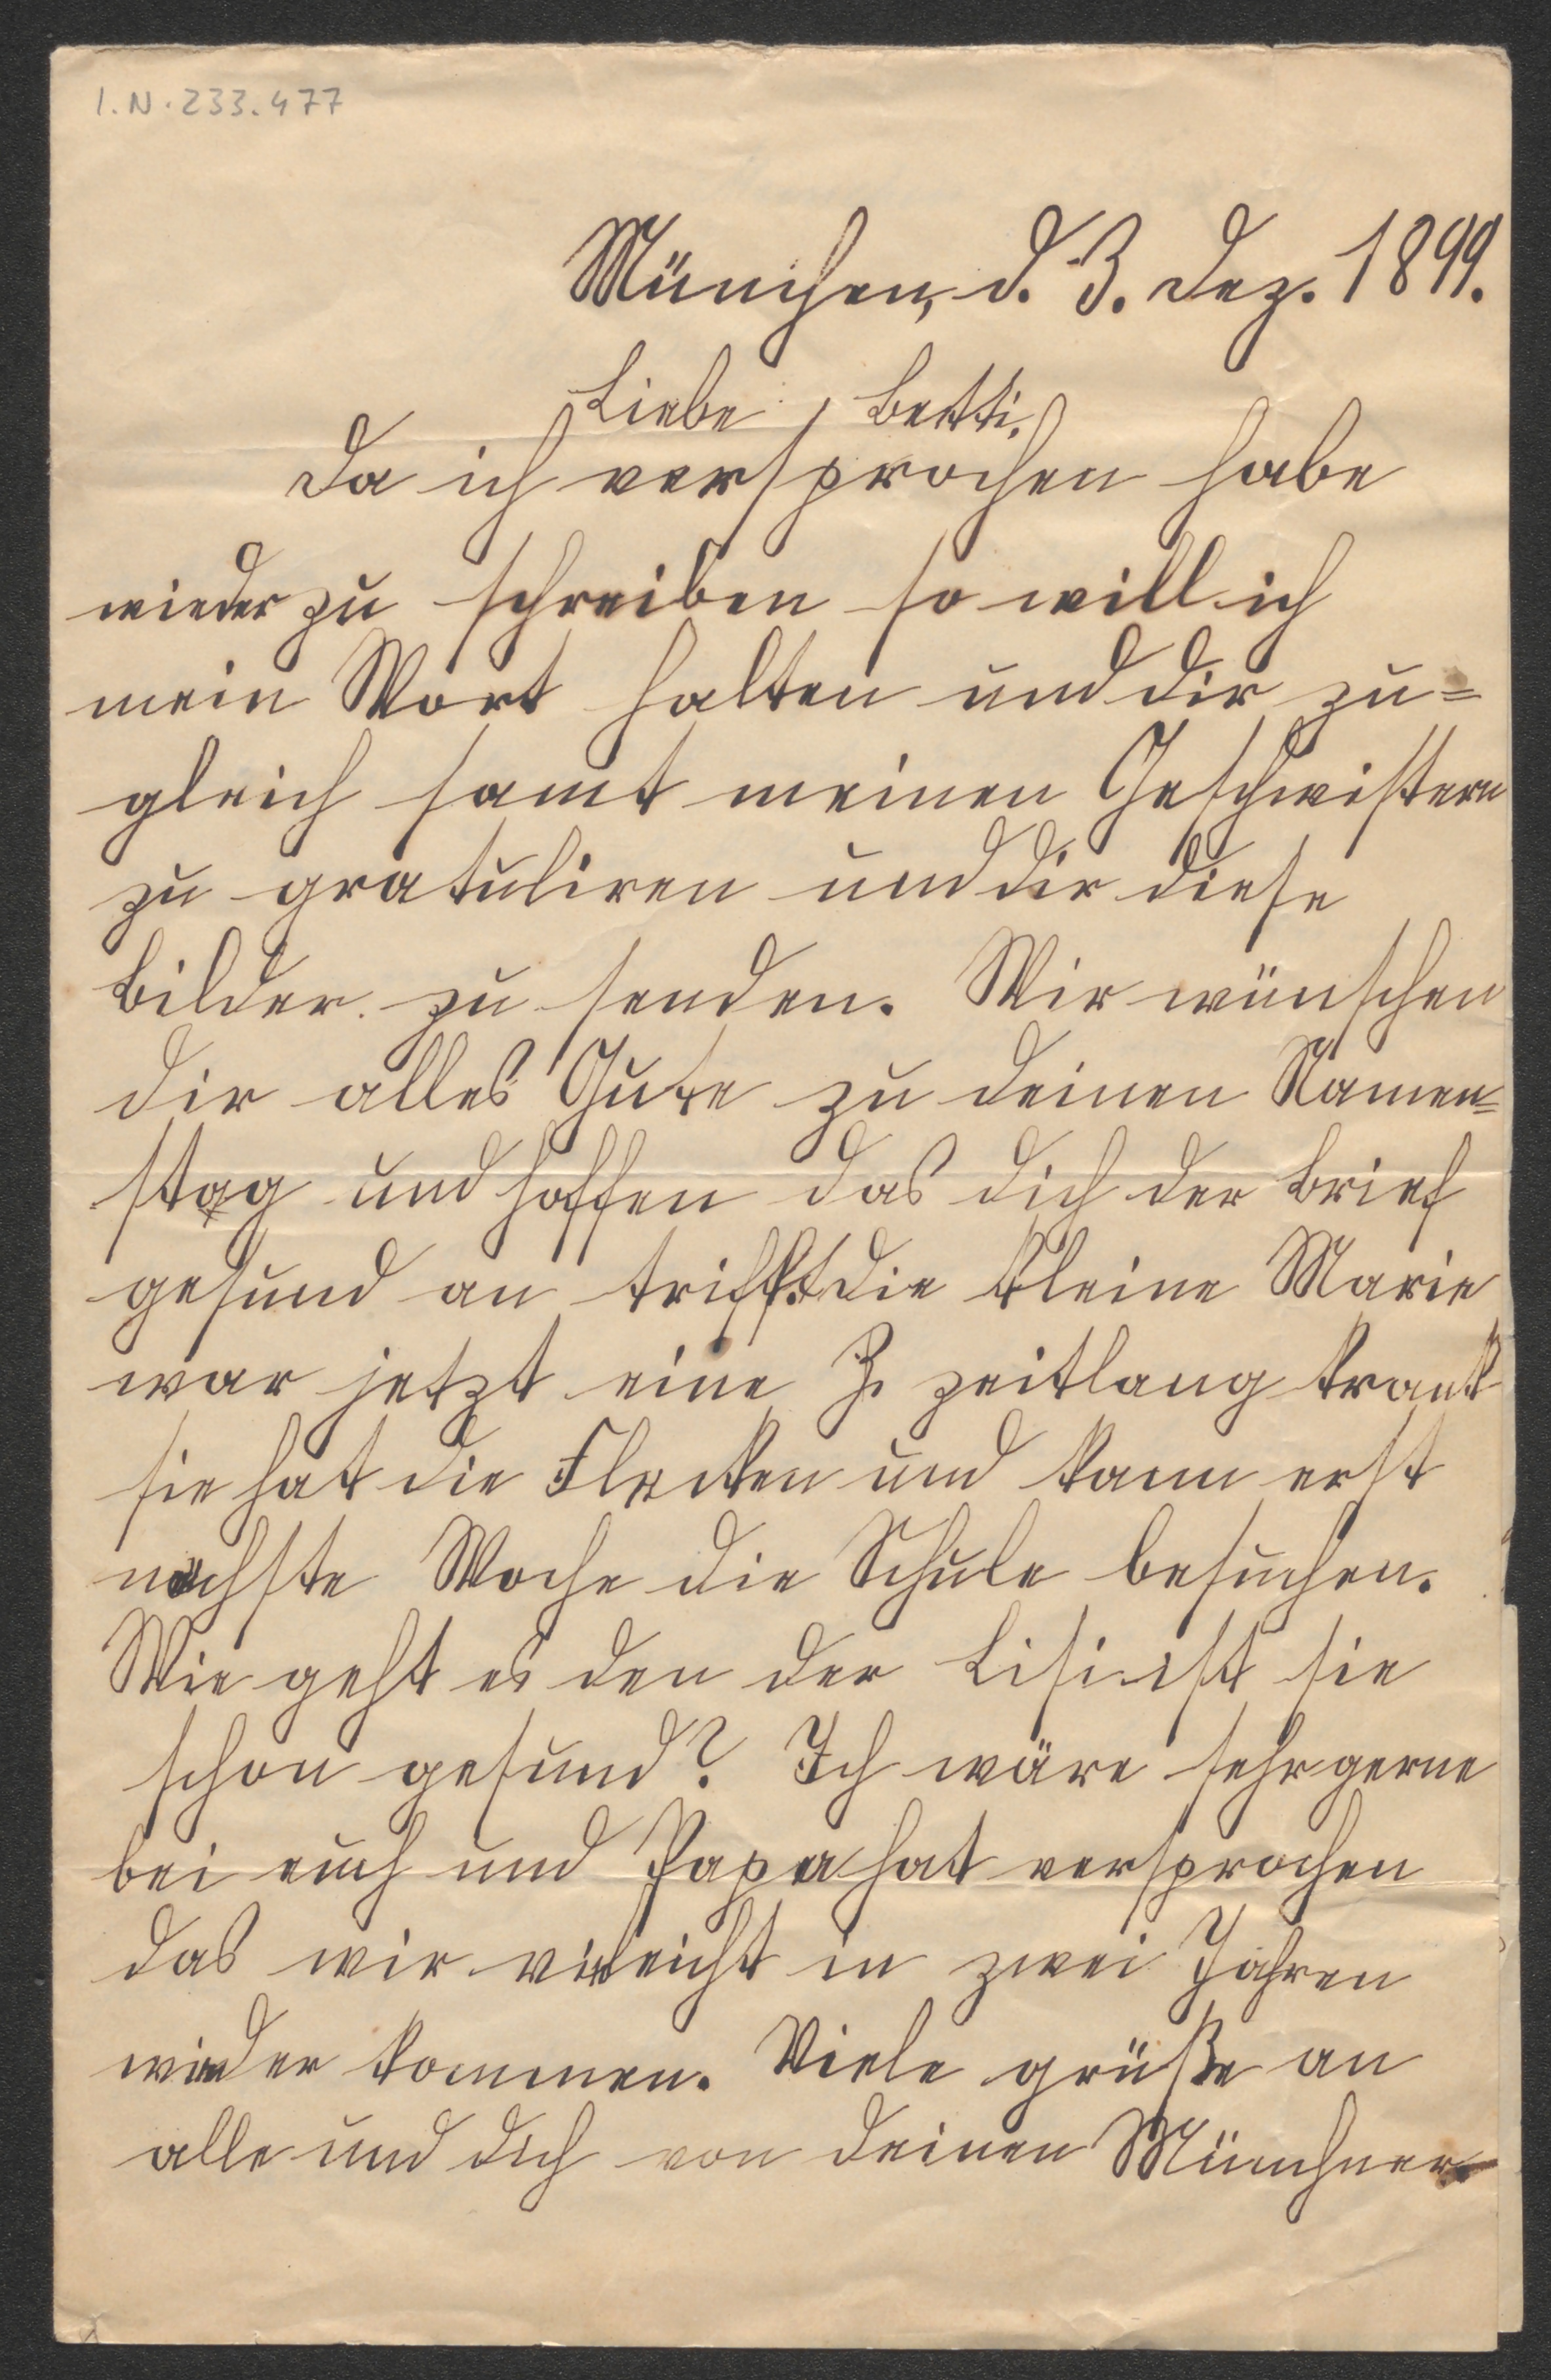 I.N. 233.477
München, d. 3. Dez. 1899.
Liebe Betti,
Da ich versprochen habe
wieder zu schreiben so will ich
mein Wort halten und dir zu=
gleich samt meinen Geschwistern
zu gratuliren und dir diese
Bilder zu senden. Wir wünschen
dir alles Gute zu deinen Namen=
stag und hoffen das dich der Brief
gesund an trifft. die kleine Marie
war jetzt eine Z. zeitlang krank
sie hat die Flecken und kann erst
nächste Woche die Schule besuchen.
Wie geht es den der Lisi ist sie
schon gesund? Ich wäre sehr gerne
bei euch und Papa hat versprochen
das wir vieleicht in zwei Jahren
wieder kommen. Viele grüße an
alle und dich von deinen Münchner